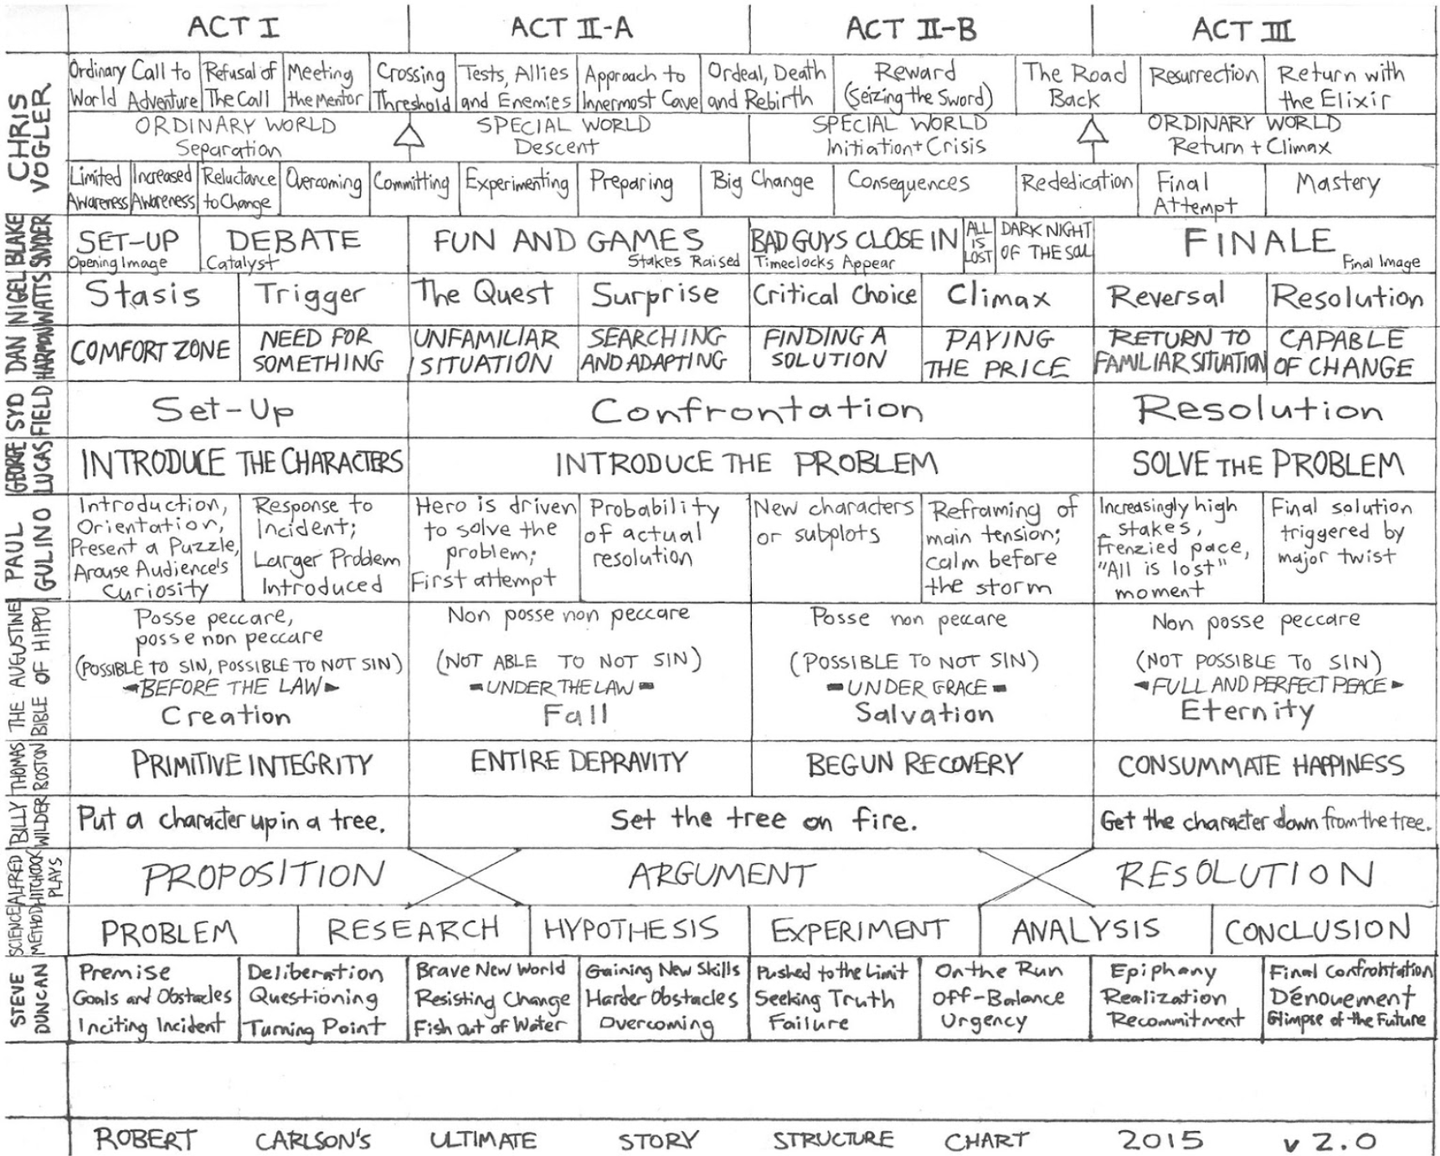 ACT I ACT II-A ACT II-B ACT III
CHRIS VOGLER
Ordinary World
Call to Adventure
Refusal of The Call
Meeting the Mentor
Crossing Threshold
Tests, Allies and Enemies
Approach to Innermost Cave
Ordeal, Death and Rebirth
Reward (Seizing the Sword)
The Road Back
Resurrection
Return with the Elixir
ORDINARY WORLD
Separation
SPECIAL WORLD
Descent
SPECIAL WORLD
Initiation + Crisis
ORDINARY WORLD
Return + Climax
Limited Awareness
Increased Awareness
Reluctance to Change
Overcoming
Committing
Experimenting
Preparing
Big Change
Consequences
Rededication
Final Attempt
Mastery
BLAKE SNYDER
SET-UP
Opening Image
DEBATE
Catalyst
FUN AND GAMES
Stakes Raised
BAD GUYS CLOSE IN
Timeclocks Appear
ALL IS LOST
DARK NIGHT OF THE SOUL
FINALE
Final Image
NIGEL WATTS
Stasis
Trigger
The Quest
Surprise
Critical Choice
Climax
Reversal
Resolution
DAN HARMON
COMFORT ZONE
NEED FOR SOMETHING
UNFAMILIAR SITUATION
SEARCHING AND ADAPTING
FINDING A SOLUTION
PAYING THE PRICE
RETURN TO FAMILIAR SITUATION
CAPABLE OF CHANGE
SYD FIELD
Set-Up
Confrontation
Resolution
GEORGE LUCAS
INTRODUCE THE CHARACTERS
INTRODUCE THE PROBLEM
SOLVE THE PROBLEM
PAUL GULINO
Introduction,
Orientation,
Present a Puzzle,
Arouse Audience's
Curiosity
Response to
Incident;
Larger Problem
Introduced
Hero is driven
to solve the
problem;
First attempt
Probability
of actual
resolution
New characters
or subplots
Reframing of
main tension;
calm before
the storm
Increasingly high
stakes,
frenzied pace,
"All is lost"
moment
Final solution
triggered by
major twist
AUGUSTINE OF HIPPO
THE BIBLE
Posse peccare,
posse non peccare
(POSSIBLE TO SIN, POSSIBLE TO NOT SIN)
BEFORE THE LAW
Creation
Non posse non peccare
(NOT ABLE TO NOT SIN)
UNDER THE LAW
Fall
Posse non peccare
(POSSIBLE TO NOT SIN)
UNDER GRACE
Salvation
Non posse peccare
(NOT POSSIBLE TO SIN)
FULL AND PERFECT PEACE
Eternity
THOMAS BOSTON
PRIMITIVE INTEGRITY
ENTIRE DEPRAVITY
BEGUN RECOVERY
CONSUMMATE HAPPINESS
BILLY WILDER
Put a character up in a tree.
Set the tree on fire.
Get the character down from the tree.
ALFRED HITCHCOCK PLAYS
PROPOSITION
ARGUMENT
RESOLUTION
SCIENCE METHOD
PROBLEM
RESEARCH
HYPOTHESIS
EXPERIMENT
ANALYSIS
CONCLUSION
STEVE DUNCAN
Premise
Goals and Obstacles
Inciting Incident
Deliberation
Questioning
Turning Point
Brave New World
Resisting Change
Fish out of Water
Gaining New Skills
Harder Obstacles
Overcoming
Pushed to the Limit
Seeking Truth
Failure
On the Run
Off-Balance
Urgency
Epiphany
Realization
Recommitment
Final Confrontation
Dénouement
Glimpse of the Future
ROBERT CARLSON'S ULTIMATE STORY STRUCTURE CHART 2015 v 2.0